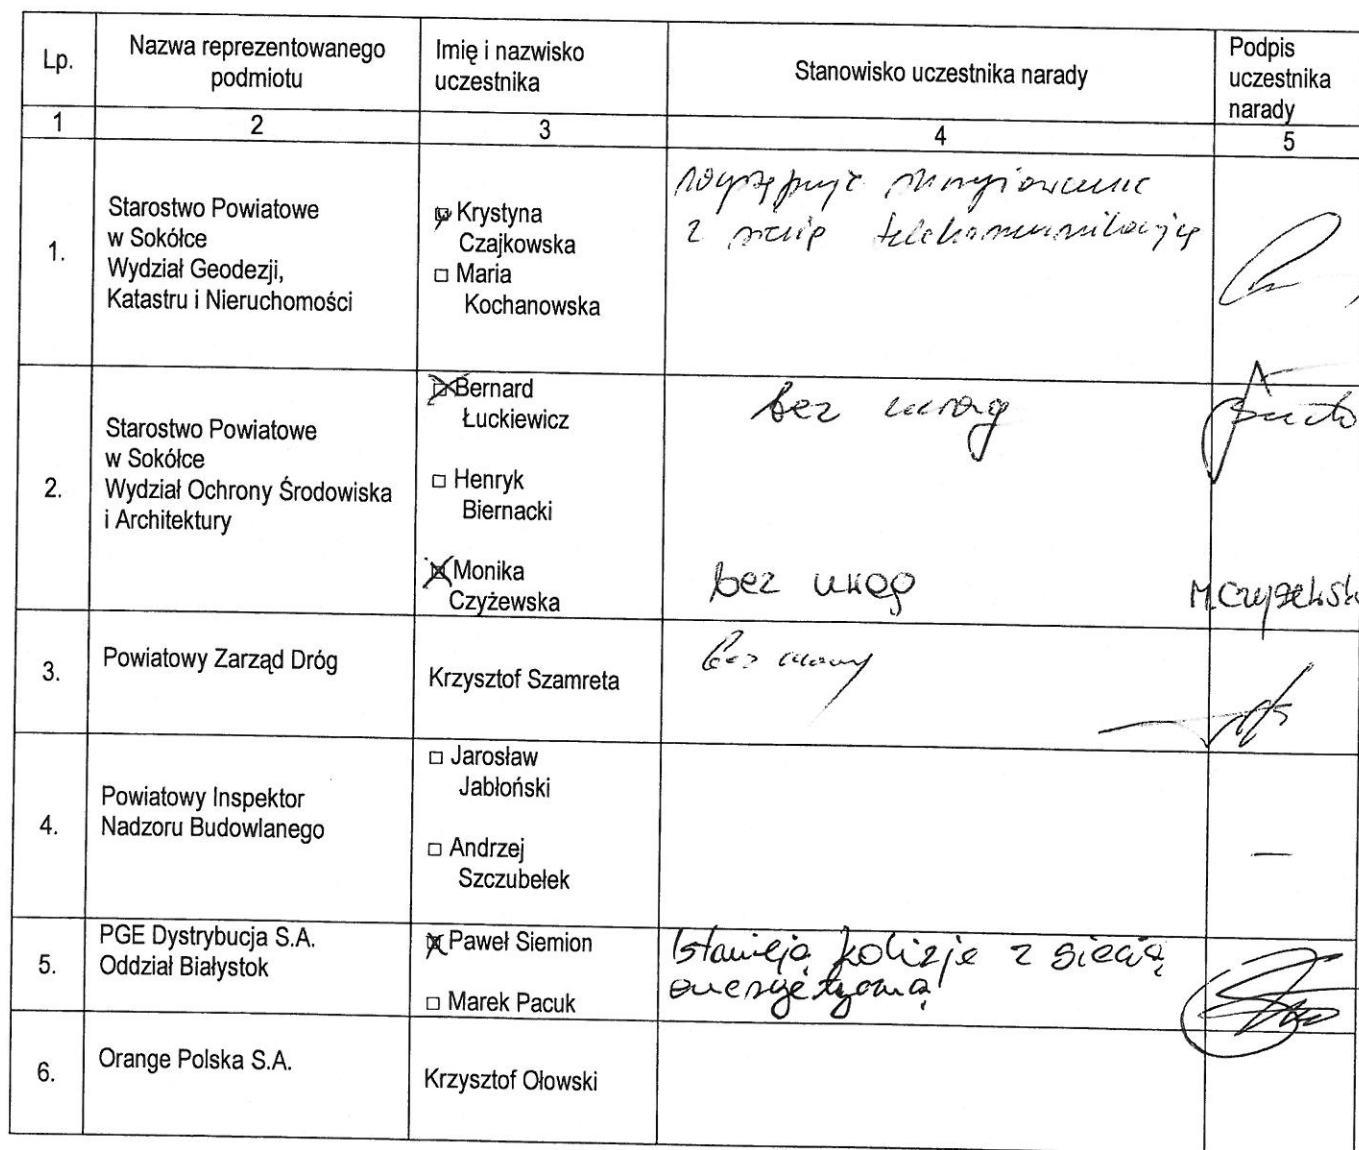 Lp.
Nazwa reprezentowanego
podmiotu
Imię i nazwisko
uczestnika
Stanowisko uczestnika narady
Podpis
uczestnika
narady
1
2
3
4
5
1.
Starostwo Powiatowe
w Sokółce
Wydział Geodezji,
Katastru i Nieruchomości
Krystyna
Czajkowska
□ Maria
Kochanowska
występuje skrzyżowanie
z siecią telekomunikacyjną
2.
Starostwo Powiatowe
w Sokółce
Wydział Ochrony Środowiska
i Architektury
Bernard
Łuckiewicz
□ Henryk
Biernacki
Monika
Czyżewska
bez uwag
bez uwag
M. Czyżewsk
3.
Powiatowy Zarząd Dróg
Krzysztof Szamreta
bez uwag
4.
Powiatowy Inspektor
Nadzoru Budowlanego
□ Jarosław
Jabłoński
□ Andrzej
Szczubełek
—
5.
PGE Dystrybucja S.A.
Oddział Białystok
Paweł Siemion
□ Marek Pacuk
Istnieją kolizje z siecią
energetyczną
6.
Orange Polska S.A.
Krzysztof Ołowski